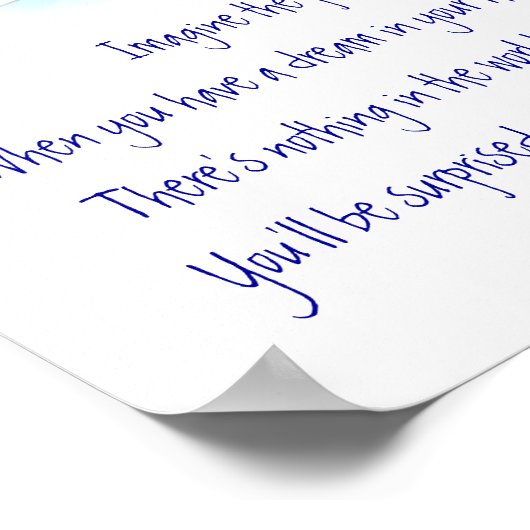 Imagine the
When you have a dream in your
There's nothing in the world
You'll be surprised